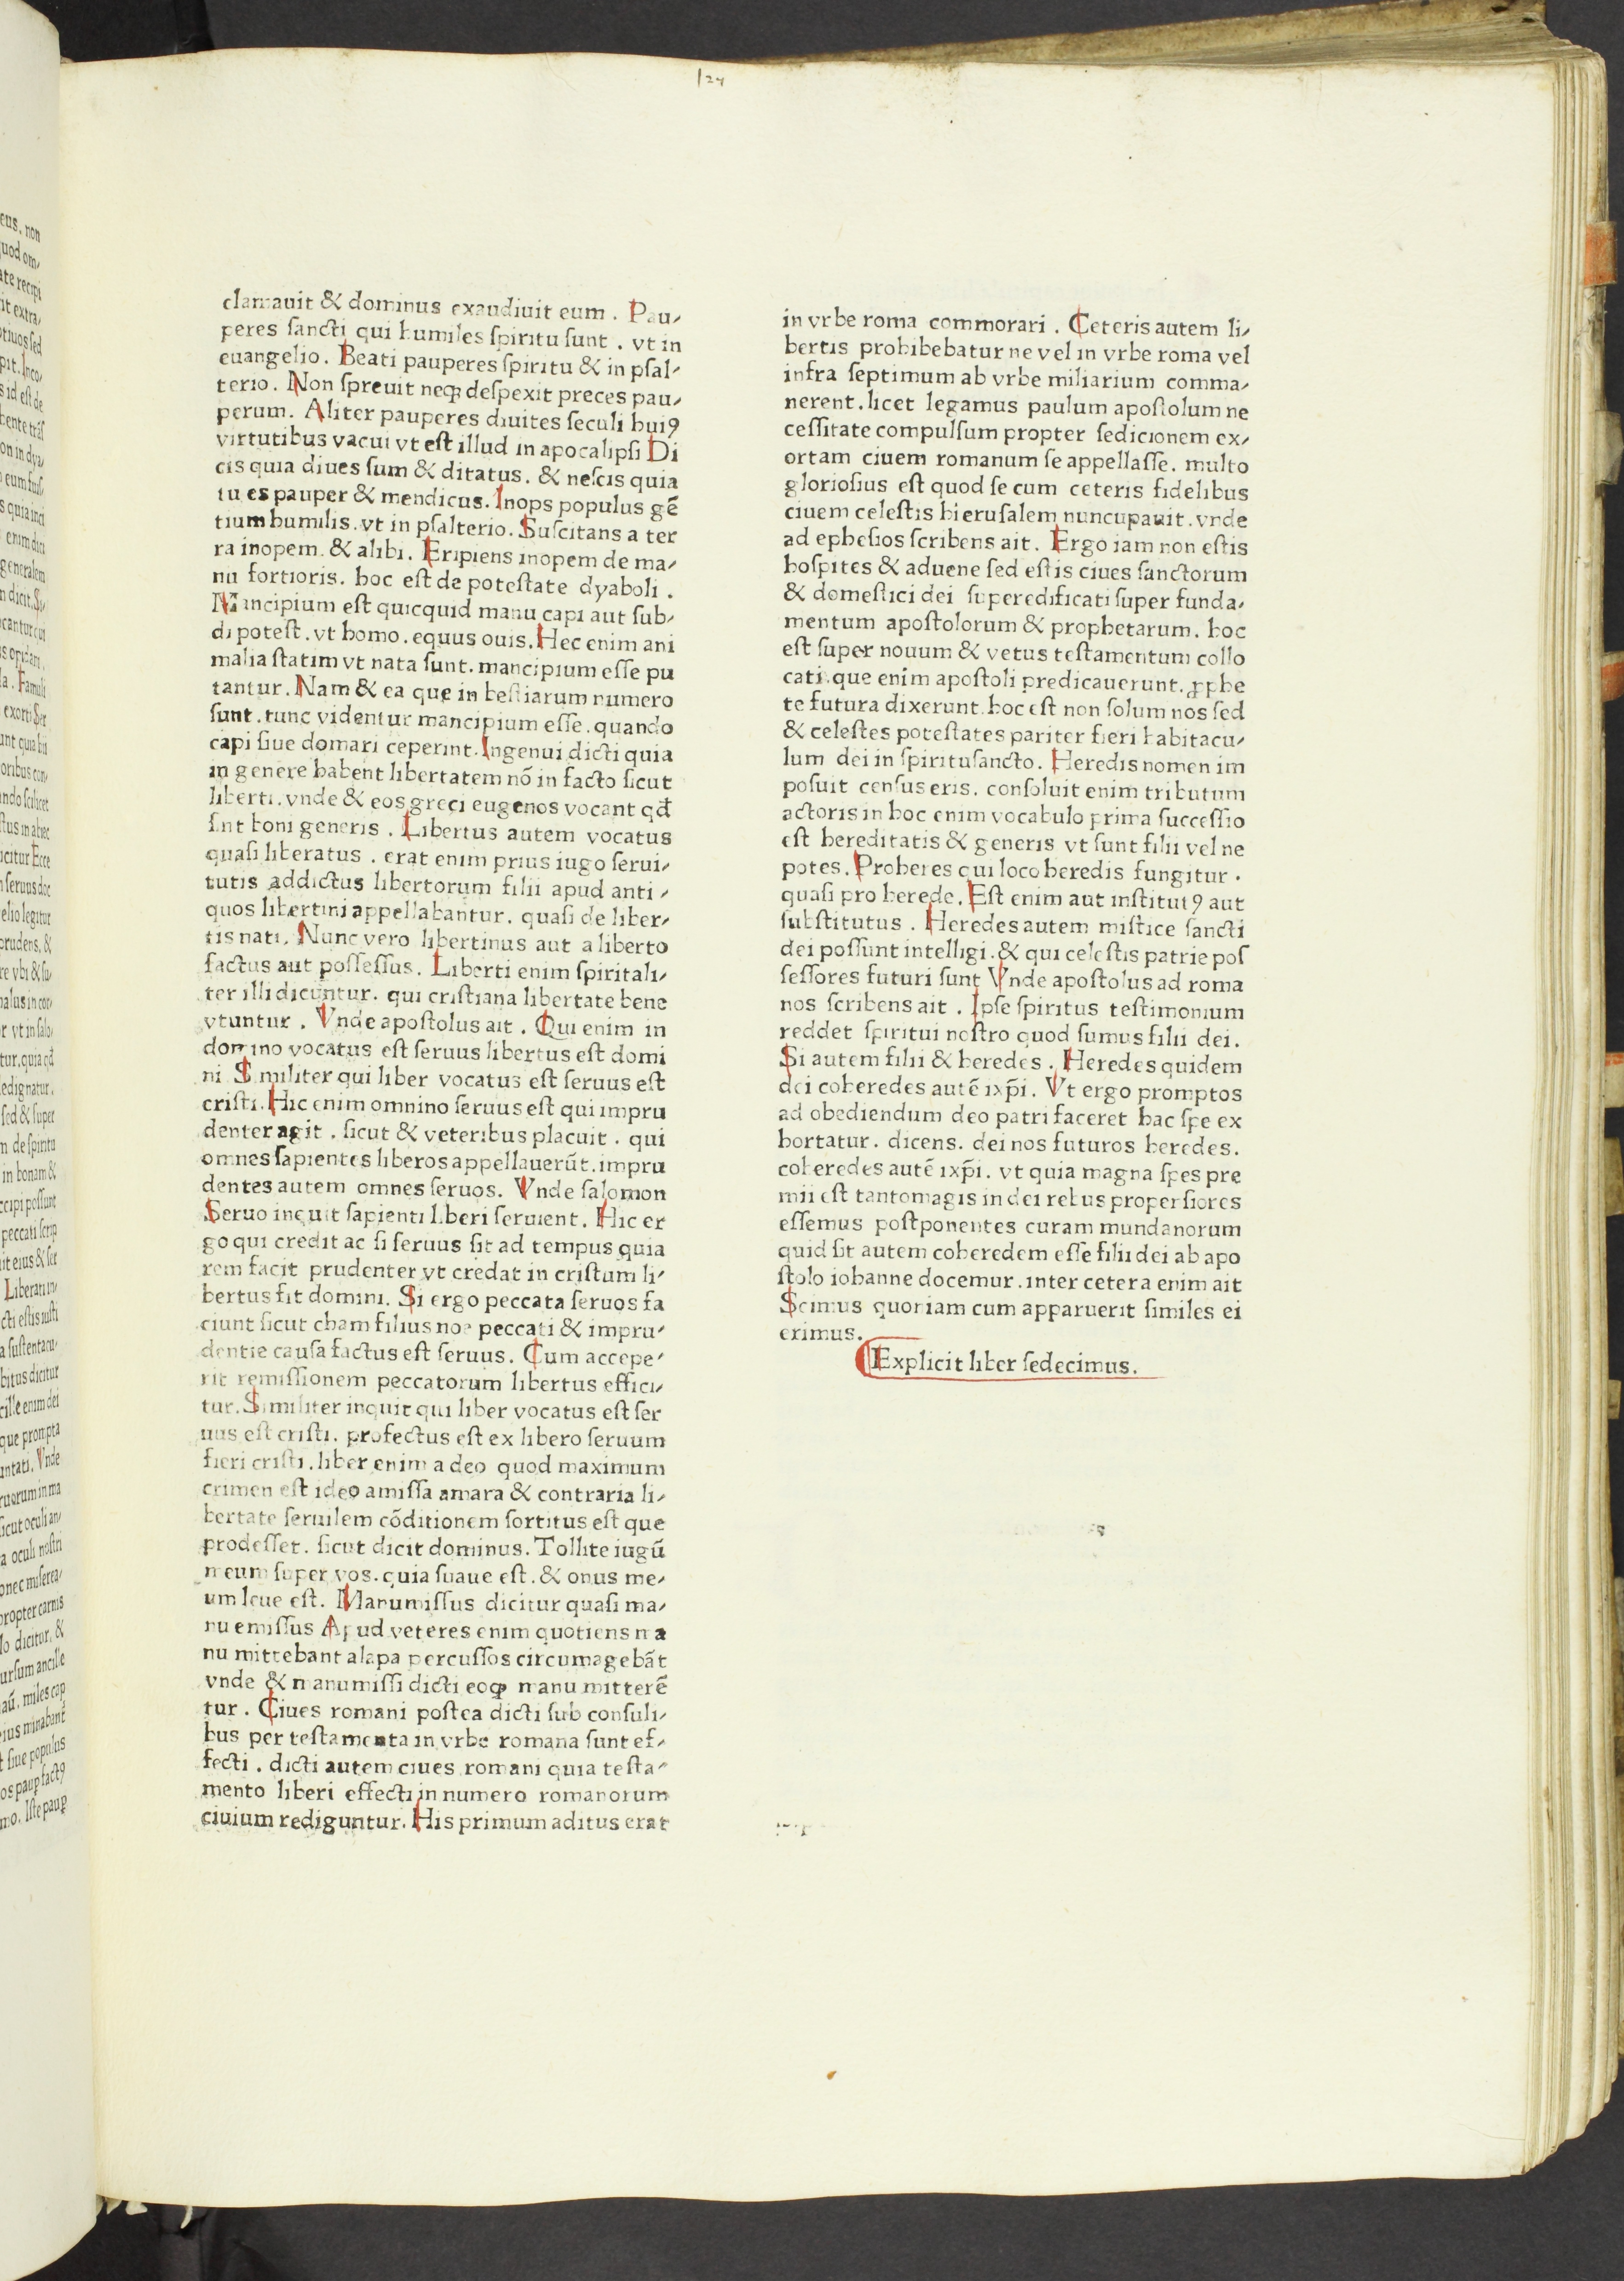 127
clamauit & dominus exaudiuit eum . Pau/
peres ſancti qui humiles ſpiritu ſunt . vt in
euangelio . Beati pauperes ſpiritu & in pſal/
terio . Non ſpreuit neqꝫ deſpexit preces pau/
perum . Aliter pauperes diuites ſeculi huiꝰ
virtutibus vacui vt eſt illud in apocalipſi Di
cis quia diues ſum & ditatus . & neſcis quia
tu es pauper & mendicus . Inops populus gē
tium humilis . vt in pſalterio . Suſcitans a ter
ra inopem . & alibi . Eripiens inopem de ma/
nu fortioris . hoc eſt de poteſtate dyaboli .
Mancipium eſt quicquid manu capi aut ſub/
di poteſt . vt homo . equus ouis . Hec enim ani
malia ſtatim vt nata ſunt . mancipium eſſe pu
tantur . Nam & ea que in beſtiarum numero
ſunt . tunc videntur mancipium eſſe . quando
capi ſiue domari ceperint . Ingenui dicti quia
in genere habent libertatem nō in facto ſicut
liberti . vnde & eos greci eugenos vocant qđ
ſint boni generis . Libertus autem vocatus
quaſi liberatus . erat enim prius iugo ſerui/
tutis addictus libertorum filii apud anti /
quos libertini appellabantur . quaſi de liber/
tis nati . Nunc vero libertinus aut a liberto
factus aut poſſeſſus . Liberti enim ſpiritali/
ter illi dicuntur . qui criſtiana libertate bene
vtuntur . Vnde apoſtolus ait . Qui enim in
domino vocatus eſt ſeruus libertus eſt domi
ni . Similiter qui liber vocatus eſt ſeruus eſt
criſti . Hic enim omnino ſeruus eſt qui impru
denter agit . ſicut & veteribus placuit . qui
omnes ſapientes liberos appellauerūt . impru
dentes autem omnes ſeruos . Vnde ſalomon
Seruo inquit ſapienti liberi ſeruient . Hic er
go qui credit ac ſi ſeruus ſit ad tempus quia
rem facit prudenter vt credat in criſtum li/
bertus fit domini . Si ergo peccata ſeruos fa
ciunt ſicut cham filius noe peccati & impru/
dentie cauſa factus eſt ſeruus . Cum accepe/
rit remiſſionem peccatorum libertus effici/
tur . Similiter inquit qui liber vocatus eſt ſer
uus eſt criſti . profectus eſt ex libero ſeruum
fieri criſti . liber enim a deo quod maximum
crimen eſt ideo amiſſa amara & contraria li/
bertate ſeruilem cōditionem ſortitus eſt que
prodeſſet . ſicut dicit dominus . Tollite iugū
meum ſuper vos . quia ſuaue eſt . & onus me/
um leue eſt . Manumiſſus dicitur quaſi ma/
nu emiſſus Apud veteres enim quotiens ma
nu mittebant alapa percuſſos circumagebāt
vnde & manumiſſi dicti eoqꝫ manu mitterē
tur . Ciues romani poſtea dicti ſub conſuli/
bus per teſtamenta in vrbe romana ſunt ef/
fecti . dicti autem ciues romani quia teſta/
mento liberi effecti in numero romanorum
ciuium rediguntur . His primum aditus erat
in vrbe roma commorari . Ceteris autem li/
bertis prohibebatur ne vel in vrbe roma vel
infra ſeptimum ab vrbe miliarium comma/
nerent . licet legamus paulum apoſtolum ne
ceſſitate compulſum propter ſedicionem ex/
ortam ciuem romanum ſe appellaſſe . multo
glorioſius eſt quod ſe cum ceteris fidelibus
ciuem celeſtis hieruſalem nuncupauit . vnde
ad epheſios ſcribens ait . Ergo iam non eſtis
hoſpites & aduene ſed eſtis ciues ſanctorum
& domeſtici dei ſuperedificati ſuper funda/
mentum apoſtolorum & prophetarum . hoc
eſt ſuper nouum & vetus teſtamentum collo
cati . que enim apoſtoli predicauerunt . ꝓphe
te futura dixerunt . hoc eſt non ſolum nos ſed
& celeſtes poteſtates pariter fieri habitacu/
lum dei in ſpirituſancto . Heredis nomen im
poſuit cenſus eris . conſoluit enim tributum
actoris in hoc enim vocabulo prima ſucceſſio
eſt hereditatis & generis vt ſunt filii vel ne
potes . Proheres qui loco heredis fungitur .
quaſi pro herede . Eſt enim aut inſtitutꝰ aut
ſubſtitutus . Heredes autem miſtice ſancti
dei poſſunt intelligi . & qui celeſtis patrie poſ
ſeſſores futuri ſunt Vnde apoſtolus ad roma
nos ſcribens ait . Ipſe ſpiritus teſtimonium
reddet ſpiritui noſtro quod ſumus filii dei .
Si autem filii & heredes . Heredes quidem
dei coheredes autē ixp̄i . Vt ergo promptos
ad obediendum deo patri faceret hac ſpe ex
hortatur . dicens . dei nos futuros heredes .
coheredes autē ixp̄i . vt quia magna ſpes pre
mii eſt tantomagis in dei rebus properſiores
eſſemus poſtponentes curam mundanorum
quid ſit autem coheredem eſſe filii dei ab apo
ſtolo iohanne docemur . inter cetera enim ait
Scimus quoniam cum apparuerit ſimiles ei
erimus .
Explicit liber ſedecimus .